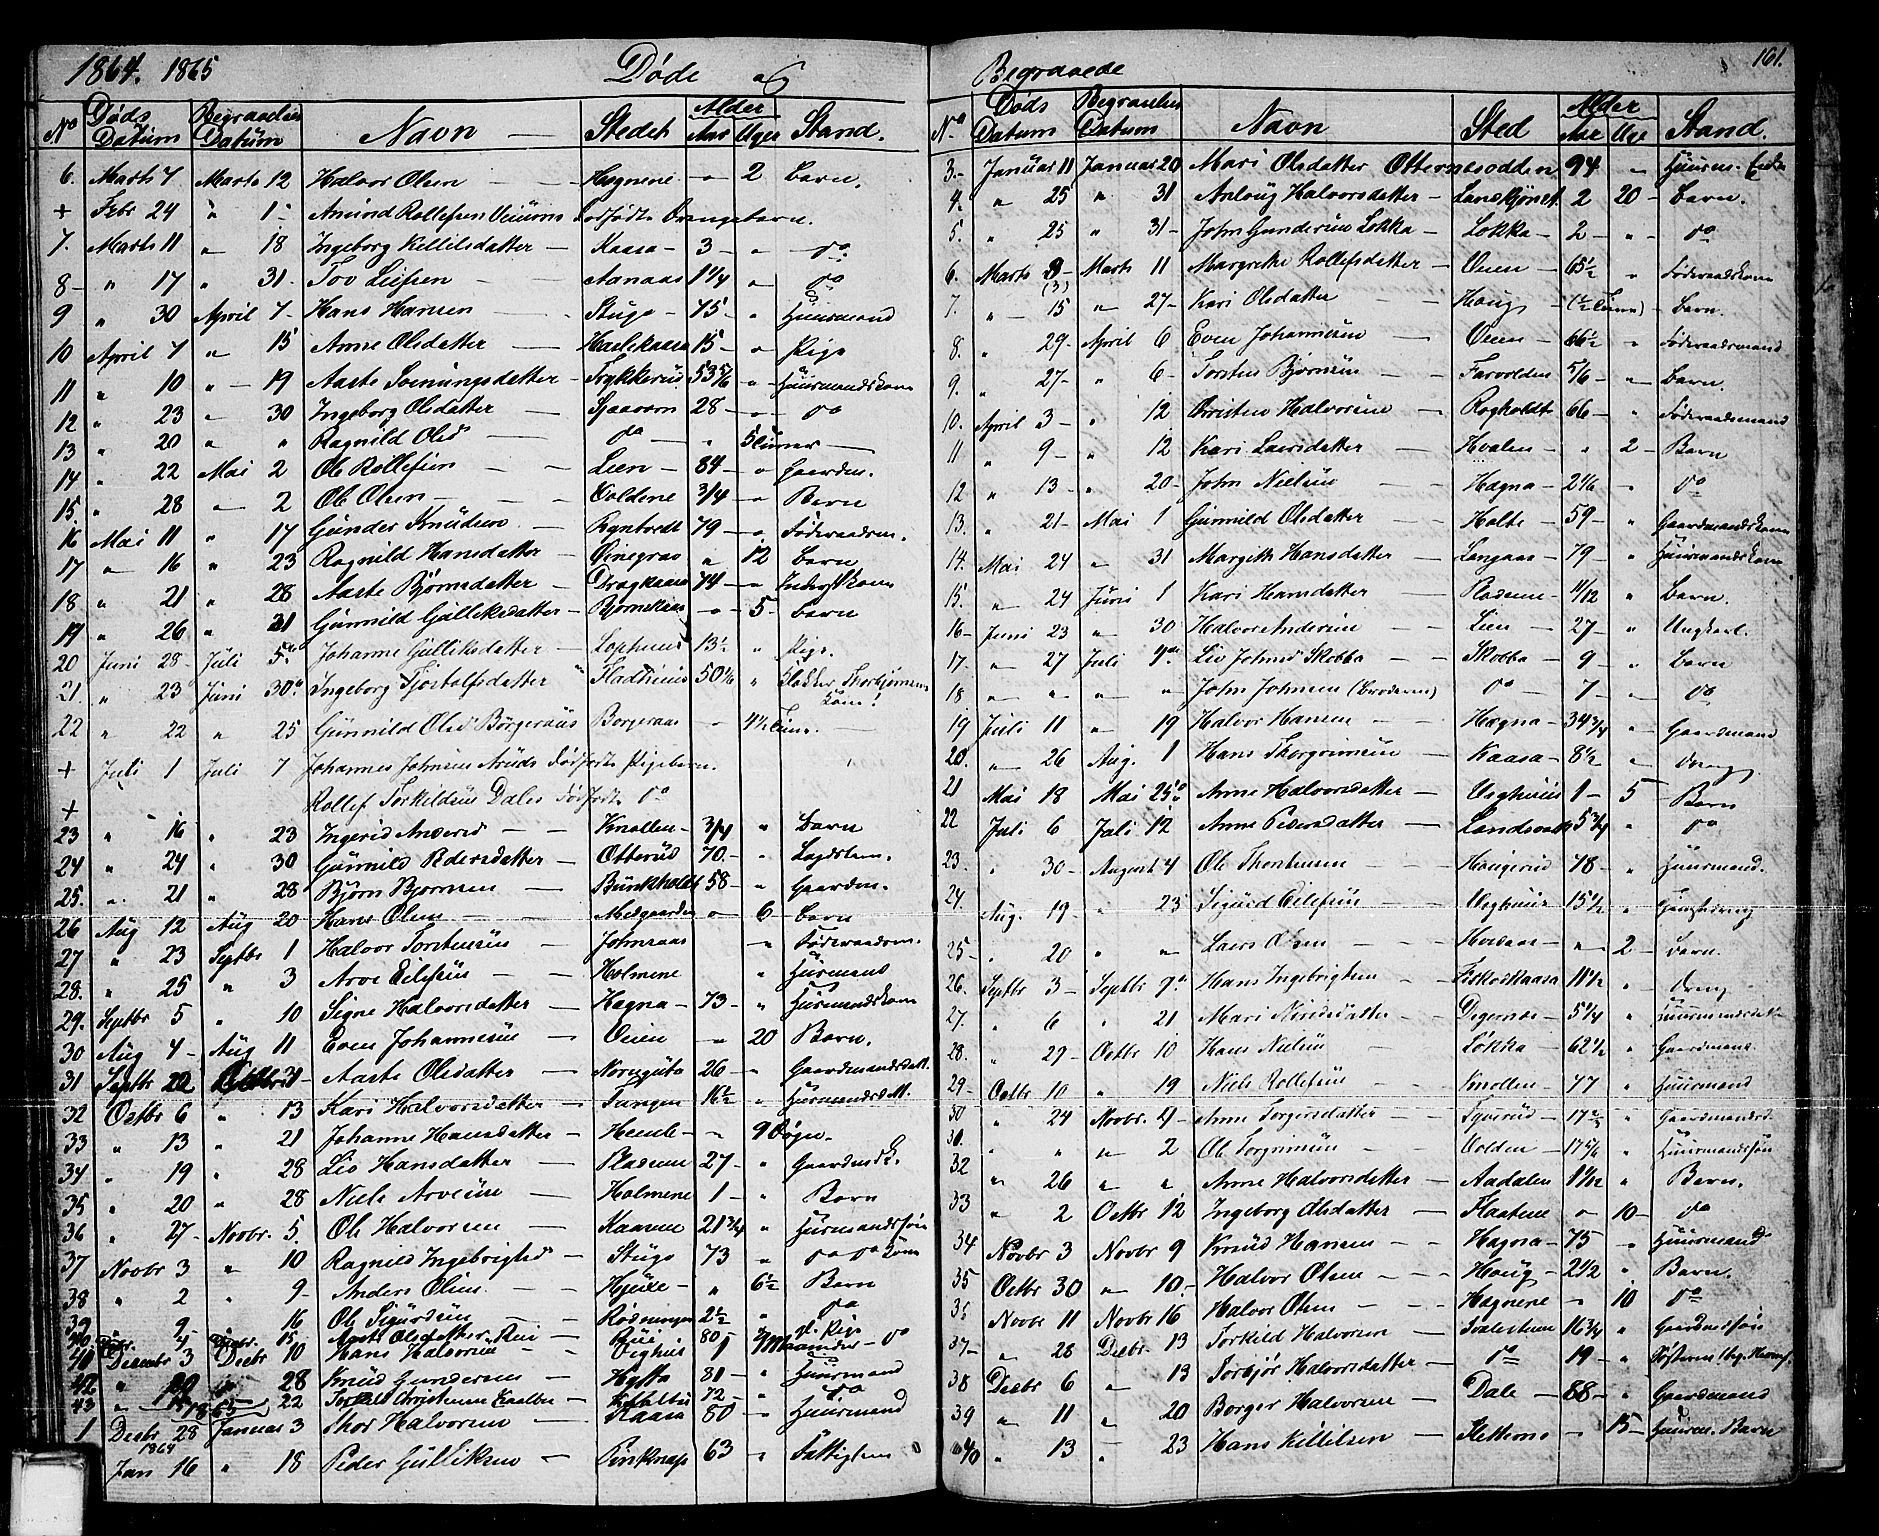 1864. 1865 Døde og
No Døds Datum Begravelses Datum Navn Stedet Alder Aar Uger Stand.
6. Marts 7 Marts 12 Halvor Olsen Hægnene " 2 Barn.
+ Febr 24 " 1 Amund Rollefsen dødfødt Drengebarn.
7. Marts 11 " 18 Ingeborg Killilsdatter Kaasa 3 " do
8 " 17 " 31 Tov Leifsen Aanaas 1 1/4 " do
9 " 30 April 7 Hans Hansen Stugo 75 " Huusmand
10 April 7 " 15 Anne Olsdatter Haslekaasa 15 " Pige
11 " 10 " 19 Aaste Sveinungsdatter 53 5/6 " Huusmandskone
12 " 23 " 30 Ingeborg Olsdatter Sjaavorn 28 " do
13 " 20 " " Ragnild Olsd do " 5 Timer
14 " 22 Mai 2 Ole Rollefsen Lien 84 " Gaardm.
15 " 28 " 2 Ole Olsen Voldene 3/4 " Barn
16 Mai 11 " 17 Gunder Knudsen 79 " Føderaadsm.
17 " 16 " 23 Ragnild Hansdatter " 12 Barn
18 " 21 " 28 Aaste Bjørnsdatter Dragkaasa 74 "
19 " 26 " 31 Gunnild Gulliksdatter " 5 Barn
20 Juni 28 Juli 5 Johanne Gulliksdatter Lophuus 13 1/2 " Pige.
21. " 23 Juni 30 Ingeborg Tjostolfsdatter Fladhuus 50 1/6 " Thorbjørnsens Kone
22 " 22 " 25 Gunnild Olsd Børgeraas Borgeraas " 4 1/2 Time.
+ Juli 1 Juli 7 Johannes Johnsen Aruds dødfødt Pigebarn.
+ Rollef Torkildsens Dales dødfødt do
23 " 16 " 23 Ingerid Andersd Knollen 3/4 " Barn
24 " 24 " 30 Gunnild Pedersdatter Otterud 70 " Lægdslem.
25. " 21 " 28 Bjørn Bjørnsen Bunkholdt 58 " Gaardm.
26 Aug 12 Aug 20 Hans Olsen Midgaarden " 6 Barn
27 " 23 Septbr 1 Halvor Torstensen Johnsaas " Føderaadsm.
28. " 25 " 3 Arve Eilefsen Holmene " Huusmand
29. Septbr 5 " 10 Signe Halvorsdatter Hegna 73 " Huusmandskone
30 Aug 4 Aug 11 Even Johannesen Veien " 20 Barn.
31 Septbr 22 Octbr 31 Aaste Olsdatter 26 " Gaardmandsdatt.
32 Octbr 6 " 13 Kari Halvorsdatter Tangen 16 1/2 " Huusmandsdatt.
33 " 13 " 21 Johanne Hansdatter Hemle " 9 Døgn.
34 " 19 " 28 Liv Hansdatter Pladsene 27 " Gaardmdsk.
35 " 20 " 28 Niels Arvesen Holmene 1 " Barn
36 " 27 Novbr. 5. Ole Halvorsen Kaasene 21 3/4 " Huusmandssøn
37 Novbr 3 " 10 Ragnild Ingebrigtsd Stugo 73 " do do Kone
38 " 2 " 9 Anders Olsen Hjulle " 6 1/2 Barn
39 " 9 " 16 Ole Sigurdsen Rodningen 2 1/2 " do
40 " 4 Decbr. 15 Aaste Olsdatter Bui Bui 80 " Pige
40 Decembr 3 Decbr 10 Hans Halvorsen Vighus 1 Maaneder do
42 " 20 " 28 Knud Gundersen Hytta 81 " Huusmand
43 " 15 " 22 Torkild Christensen 72 " do
1865
1 Decbr 28 1864 Januar 3 Thor Halvorsen Kaasa 50 " Huusmand
Jan 16 " 18 Peder Gulliksen 63 " Fattiglem
Begravede 161.
No Døds Datum Begravelses Datum Navn Sted Alder Aar Uge Stand.
3. Januar 11 Januar 20 Mari Olsdatter Otternesodden 94 " Huusm. Enke
4. " 25 " 31 Anlaug Halvorsdatter 2 20 Barn.
5. " 25 " 31 John Gundersen Løkka Løkka 2 " do
6. Marts 9 (3) Marts 11 Margrethe Rollefsdatter Veien 65 1/2 " Føderaadskone
7. " 15 " 27 Kari Olsdatter Houg (1/2 Time) Barn.
8. " 29 April 6 Even Johannesen Veien 66 1/2 " Føderaadsmand
9. " 27 " 6 Torsten Bjørnsen Farvolden 5/6 " Barn.
10. April 3 " 12 Christen Halvorsen Rogholdt 66 " Føderaadsmand
11 " 9 " 12 Kari Larsdatter Hvalen " 2 Barn
12 " 13 " 20 John Nielsen Hægna 2 1/6 " do
13. " 21 Mai 1 Gunnild Olsdatter Holte 59 " Gaardmandskone
14. Mai 24 " 31 Margith Hansdatter Langaas 79 " Huusmandskone
15. " 24 Juni 1 Kari Hansdatter Pladsene 11/12 " Barn.
16 Juni 23 " 30 Halvor Andersen Lien 27 " Ungkarl.
17. " 27 Juli 7 Liv Johnsd Skobba Skobba 9 " Barn
18 " " " " John Johnsen (Broderen) do 7 " do
19 Juli 11 " 19 Halvor Hansen Hægna 34 3/4 " Gaardmand
20. " 26 Aug. 1 Hans Thorgrimsen Kaasa 8 1/2 " Dreng
21 Mai 18 Mai 25 Anne Halvorsdatter Veghuus 1 5 Barn
22 Juli 6 Juli 12 Anne Pedersdatter Landsverk 5 3/4 " do
23. " 30 August 4 Ole Thorstensen Haugerud 78 " Huusmand.
24. Aug. 19 " 23 Sigurd Eilefsen Veghuus 15 1/2 "
25 " 20 " " Laers Olsen " 2 Barn.
26. Septbr 3 Septbr 7 Hans Ingebrigtsen 11 1/2 " Dreng
27. " 6 " 21 Mari Digernes 5 1/4 " Huusmandsdatter
28. " 27 Octbr 10 Hans Nielsen Løkka 62 1/2 " Gaardmand.
29 Octbr 10 " 19 Niels Rollefsen Knollen 77 " Huusmand
30 " 24 Novbr. 4 Anne Torgersdatter 17
30. " " " 2 Ole Torgrimsen Volden 17 5/6 " Huusmandssøn
32 " 26 " " Anne Halvorsdatter Aadalen 1 1/12 " Barn.
33 " 2 Octbr 12 Ingeborg Olsdatter Flaatene " 10 do
34 Novbr 3 Novbr 9 Knud Hansen Hagna 75 " Huusmand
35 Octbr 30 " 10 Halvor Olsen Houg 2 1/2 " Barn.
36 Novbr 11 Novbr 16 Halvor Olsen Hægnene " 10 do
37 " 28 Decbr. 13 Torkild Halvorsen 16 3/4 " Gaardmdssøn
38 Decbr 6 " 13 Torbjør Halvorsdatter do 19 " Søsteren
39 " 11 " 20 Borger Halvorsen Dale 88 " Gaardmand
40 " 13 " 23 Hans Killilsen " 15 Huusm. Barn